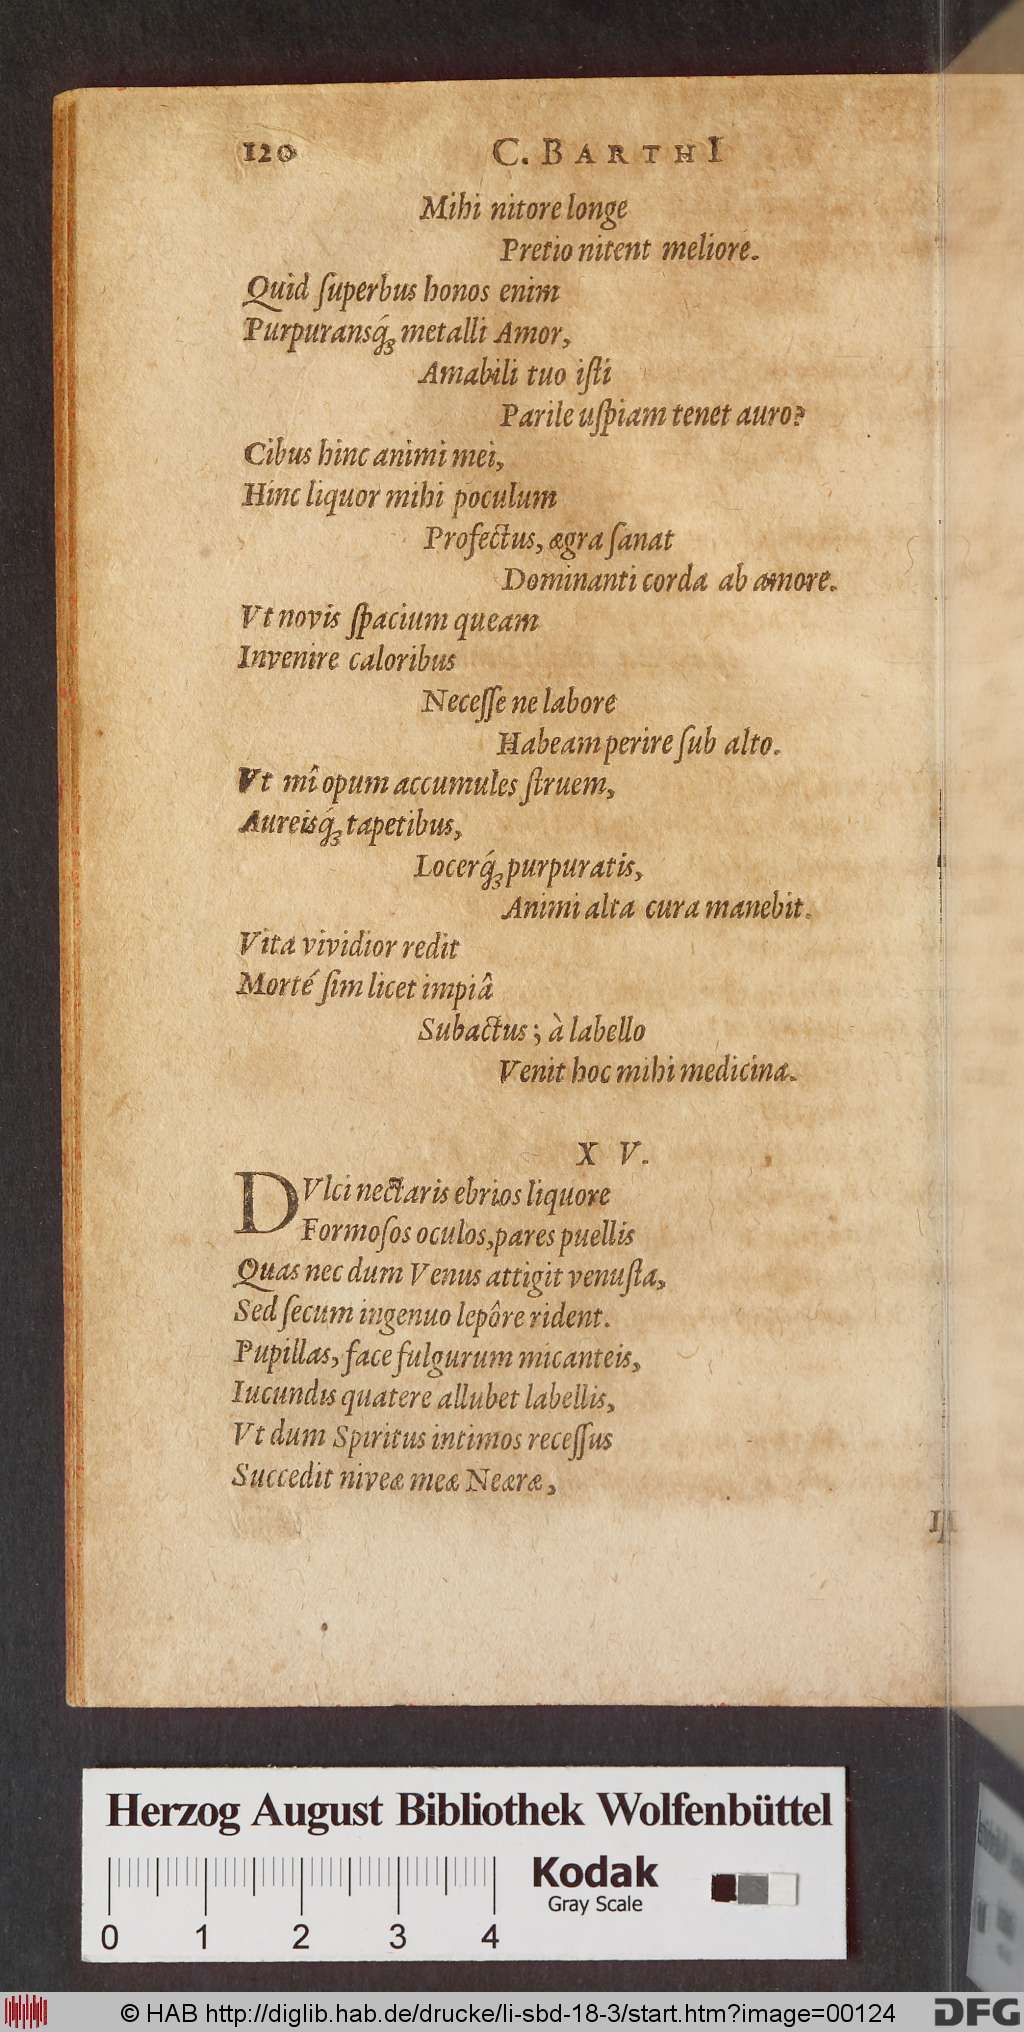 120 C. BARTHI
Mihi nitore longe
Pretio nitent meliore.
Quid ſuperbus honos enim
Purpuransq́ꝫ metalli Amor,
Amabili tuo iſti
Parile uſpiam tenet auro?
Cibus hinc animi mei,
Hinc liquor mihi poculum
Profectus, ægra ſanat
Dominanti corda ab amore.
Vt novis ſpacium queam
Invenire caloribus
Neceſſe ne labore
Habeam perire ſub alto.
Vt mî opum accumules ſtruem,
Aureisq́ꝫ tapetibus,
Locerq́ꝫ purpuratis,
Animi alta cura manebit.
Vita vividior redit
Morté ſim licet impiâ
Subactus; à labello
Venit hoc mihi medicina.
XV.
DVlci nectaris ebrios liquore
Formoſos oculos, pares puellis
Quas nec dum Venus attigit venuſta,
Sed ſecum ingenuo lepôre rident.
Pupillas, face fulgurum micanteis,
Iucundis quatere allubet labellis,
Vt dum Spiritus intimos receſſus
Succedit niveæ meæ Neæræ,
Herzog August Bibliothek Wolfenbüttel
Kodak
Gray Scale
0 1 2 3 4
© HAB http://diglib.hab.de/drucke/li-sbd-18-3/start.htm?image=00124
DFG